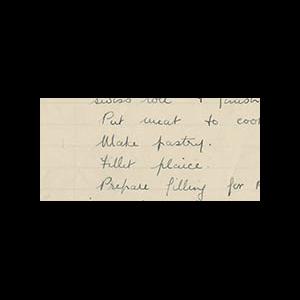 swiss roll + finish
Put meat to cook
Make pastry.
Fillet plaice.
Prepare filling for